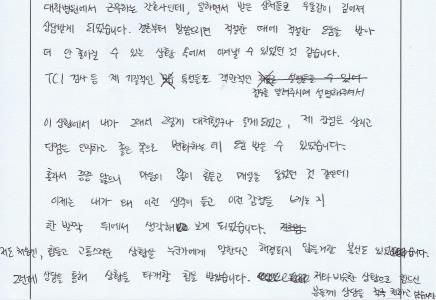 대학병원에서 근무하는 간호사인데, 일하면서 받는 상처들로 우울감이 깊어져
상담받게 되었습니다. 결론부터 말씀드리면 적절한 때에 적절한 도움을 받아
더 안 좋아질 수 있는 상황 속에서 이겨낼 수 있었던 것 같습니다.
TCI 검사 등 제 기질적인 특성들로 객관적인
점수를 알려주시며 설명해주셔서
이 상황에서 내가 그래서 그렇게 대처했구나 알게되었고, 제 장점은 살리고
단점은 인정하고 좋은 쪽으로 변화하는 데 도움 받을 수 있었습니다.
혼자서 끙끙 앓으니 마음이 많이 힘들고 매일을 울었던 것 같은데
이제는 내가 왜 이런 생각이 들고 이런 감정을 느끼는 지
한 발짝 뒤에서 생각해 보게 되었습니다.
저도 처음엔, 힘들고 고통스러운 상황을 누군가에게 말한다고 해결되지 않을거란 불신도 있었습니다.
그런데 상담을 통해 상황을 타개할 힘을 받았습니다. 저와 비슷한 상황으로 힘드신
분들께 상담을 적극 권하고 싶습니다